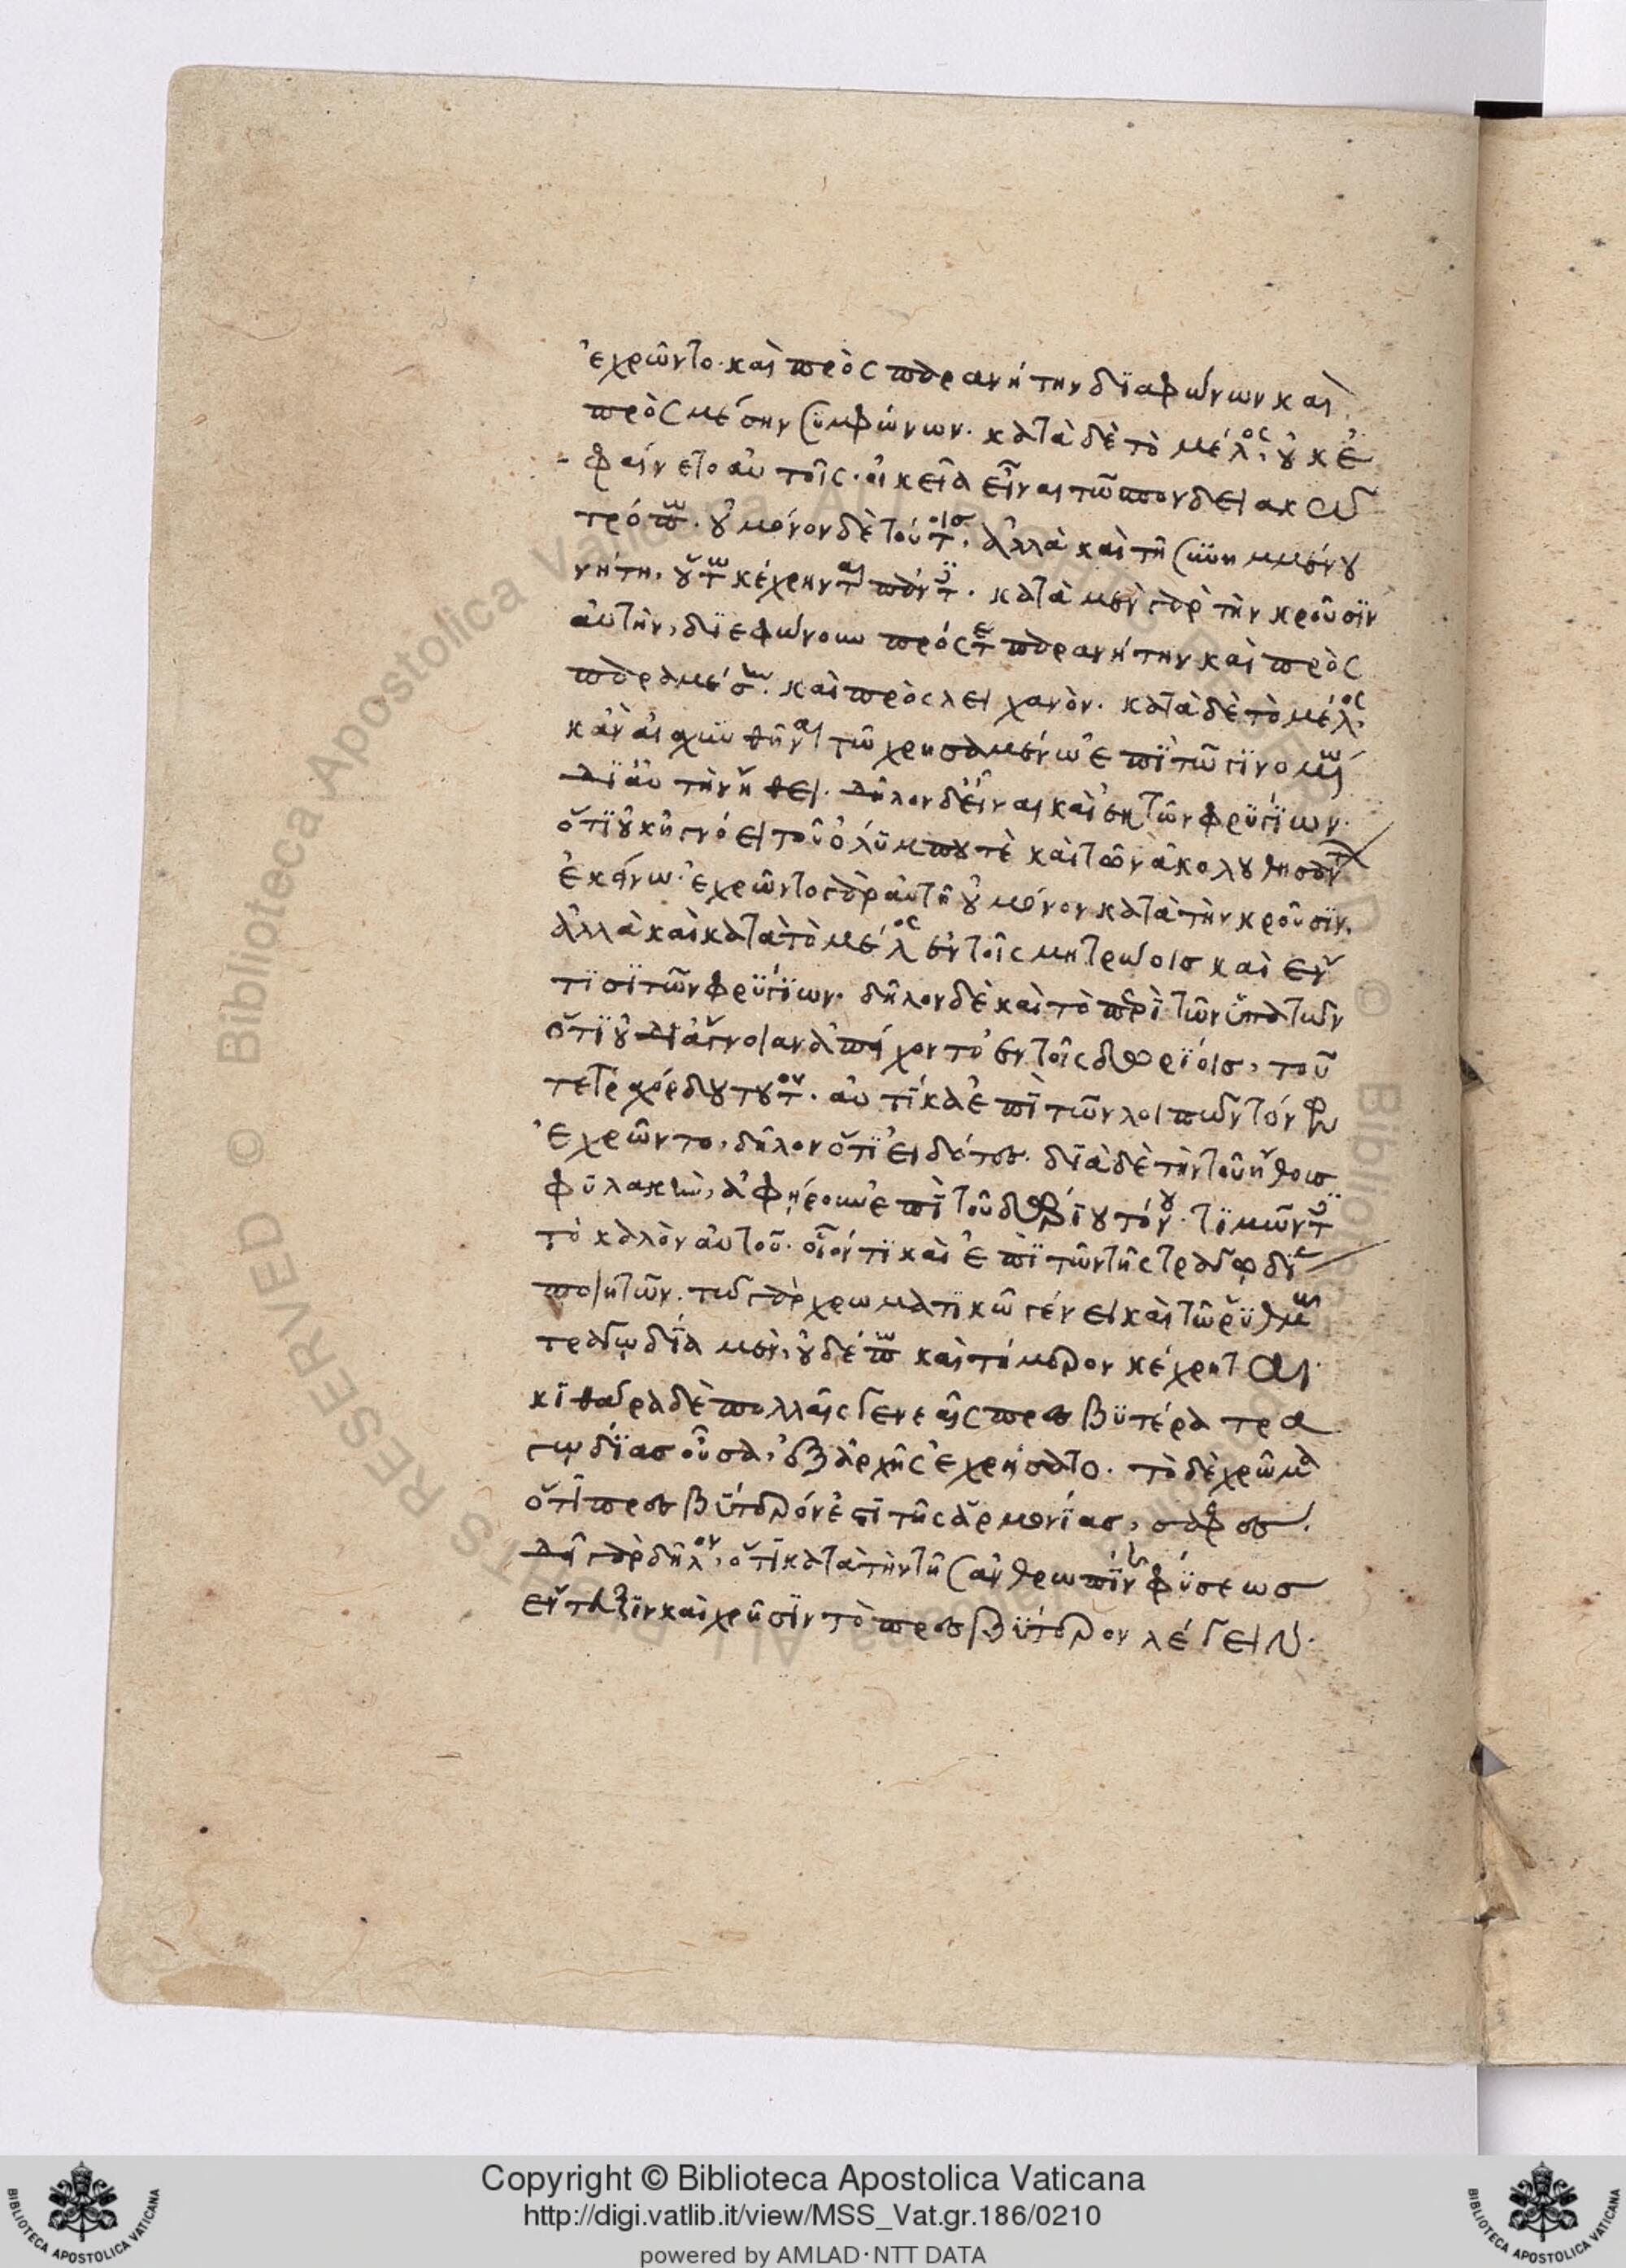 ἐχρῶντο· καὶ πρὸς παρανήτην διαφώνων καὶ
πρὸς μέσην συμφώνων. κατὰ δὲ τὸ μέλος, οὐκ ἐ
φαίνετο αὐτοῖς· οἰκεῖα εἶναι τῶ σπονδειακῶ
τρόπω. οὐ μόνον δὲ τούτοις, ἀλλὰ καὶ τῆ συνημμένου
νήτη, οὕτω κέχρηνται πάντες. κατὰ μὲν γὰρ τὴν κροῦσιν
αὐτὴν, διεφώνουν πρός τε παρανήτην καὶ πρὸς
παραμέσην. καὶ πρὸς λειχανόν. κατὰ δὲ τὸ μέλος,
κἂν αἰσχυνθῆναι τῶ χρησαμένω ἐπὶ τῶ γινομένω
διαὐτὴν ἤθει. δῆλον δεῖναι καὶ ἐκ τῶν φρυγίων.
ὅτι οὐκ ἠγνόει τοῦ ὀλύμπου τὲ καὶ τῶν ἀκολουθησάντων
ἐκείνω· ἐχρῶντο γὰρ αὐτῆ οὐ μόνον κατὰ τὴν κροῦσιν.
ἀλλὰ καὶ κατὰ τὸ μέλος ἐν τοῖς μητρώοις καὶ ἔν
τισι τῶν φρυγίων. δῆλον δὲ καὶ τὸ περὶ τῶν ὑπατῶν
ὅτι οὐ δι' ἄγνοιαν ἀπείχοντο ἐν τοῖς δωρίοις, τοῦ
τετραχόρδου τούτου. αὐτίκα ἐπὶ τῶν λοιπῶν τόνων
ἐχρῶντο, δῆλον ὅτι εἰδότες. διὰ δὲ τὴν τοῦ ἤθους
φυλακὴν, ἀφήρουν ἐπὶ τοῦ δωρίου τόνου. τιμῶντες
τὸ καλὸν αὐτοῦ. οἷόν τι καὶ ἐπὶ τῶν τῆς τραγωδίας
ποιητῶν. τῶ γὰρ χρωματικῶ γένει καὶ τῶ ῥυθμῶ
τραγωδία μὲν, οὐδέπω καὶ τήμερον κέχρηται.
κιθάρα δὲ πολλαῖς γενεαῖς πρεσβυτέρα τρα
γωδίας οὖσα, ἐξ ἀρχῆς ἐχρήσατο. τὸ δὲ χρῶμα
ὅτι πρεσβύτερόν ἐστι τῆς ἁρμονίας, σαφές.
δεῖ γὰρ δῆλον, ὅτι κατὰ τὴν τῆς ἀνθρωπίνης φύσεως
ἔντευξιν καὶ χρῆσιν τὸ πρεσβύτερον λέγειν.
Copyright © Biblioteca Apostolica Vaticana
http://digi.vatlib.it/view/MSS_Vat.gr.186/0210
powered by AMLAD·NTT DATA
BIBLIOTECA APOSTOLICA VATICANA
BIBLIOTECA APOSTOLICA VATICANA